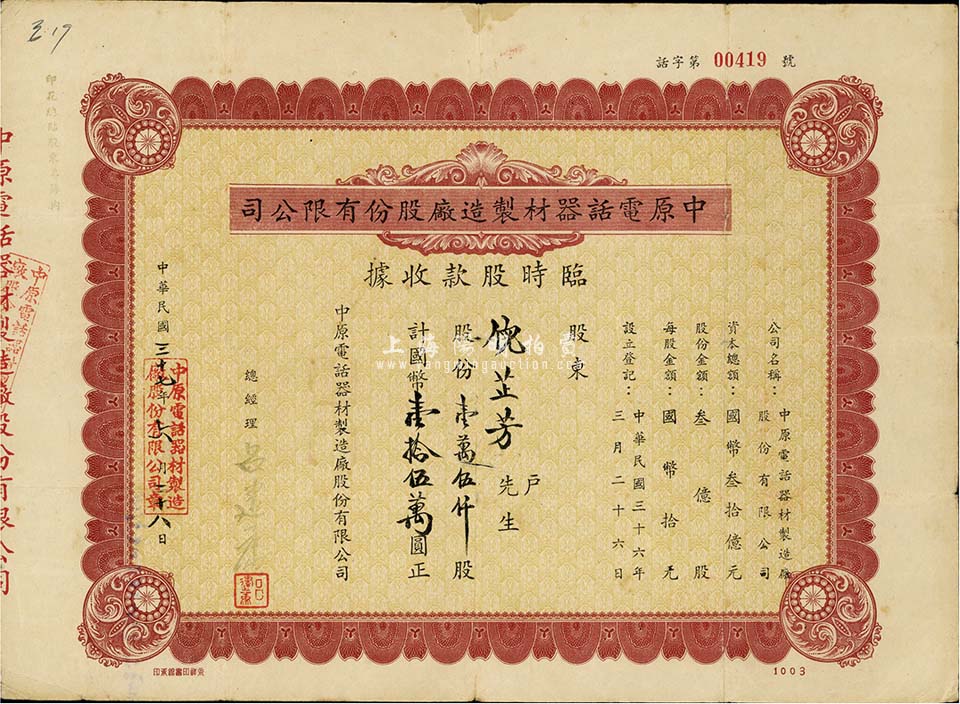 話字第 00419 號
中原電話器材製造廠股份有限公司
臨時股款收據
公司名稱：中原電話器材製造廠股份有限公司
資本總額：國幣叁拾億元
股份金額：叁億股
每股金額：國幣拾元
設立登記：中華民國三十六年三月二十六日
股東
倪芷芳 先生 戶
股份壹萬伍仟股
計國幣壹拾伍萬圓正
中原電話器材製造廠股份有限公司
總經理
中華民國三十七年 月 十八日
中原電話器材製造廠股份有限公司章
中原電話器材製造廠股份有限公司
1003